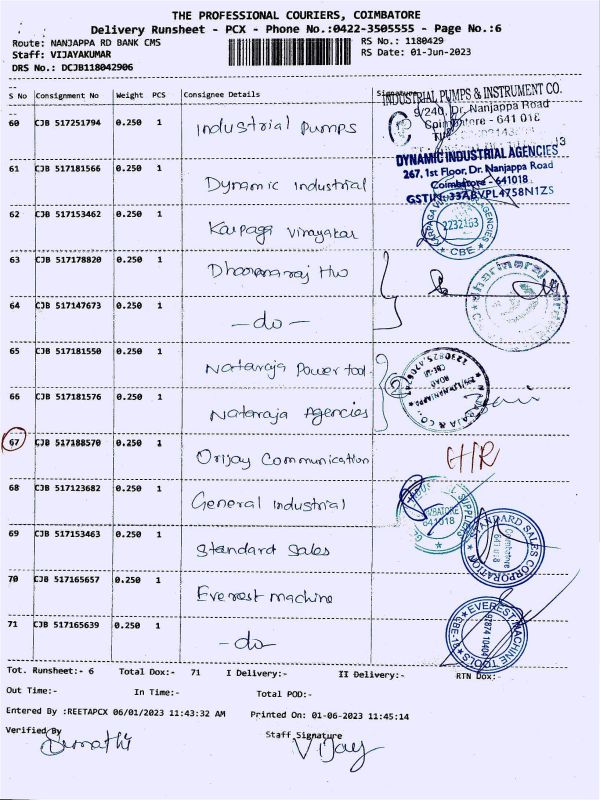 THE PROFESSIONAL COURIERS, COIMBATORE
Delivery Runsheet - PCX - Phone No.:0422-3505555 - Page No.:6
Route: NANJAPPA RD BANK CMS RS No.: 1180429
Staff: VIJAYAKUMAR RS Date: 01-Jun-2023
DRS No.: DCJB118042906
S No Consignment No Weight PCS Consignee Details Signature
INDUSTRIAL PUMPS & INSTRUMENT CO.
9/240, Dr. Nanjappa Road
Coimbatore - 641 018
60 CJB 517251794 0.250 1 Industrial Pumps
DYNAMIC INDUSTRIAL AGENCIES
267, 1st Floor, Dr. Nanjappa Road
Coimbatore - 641018
GSTIN: 33ABVPL4758N1ZS
61 CJB 517181566 0.250 1 Dynamic Industrial
62 CJB 517153462 0.250 1 Karpaga Vinayakar
2232163
CBE
63 CJB 517178820 0.250 1 Dhaanaraj Hw
64 CJB 517147673 0.250 1 -do-
65 CJB 517181550 0.250 1 Nataraja Power tool
66 CJB 517181576 0.250 1 Nataraja Agencies
2
67 CJB 517188570 0.250 1 Orijay Communication H/R
68 CJB 517123682 0.250 1 General Industrial
641018
69 CJB 517153463 0.250 1 Standard Sales
STANDARD SALES CORPORATION
Coimbatore
641 018
70 CJB 517165657 0.250 1 Everest machine
71 CJB 517165639 0.250 1 -do-
EVEREST MACHINE TOOLS
CBE-18
97874 10404
Tot. Runsheet:- 6 Total Dox:- 71 I Delivery:- II Delivery:- RTN Dox:-
Out Time:- In Time:- Total POD:-
Entered By :REETAPCX 06/01/2023 11:43:32 AM Printed On: 01-06-2023 11:45:14
Verified By Staff Signature
Sumathi Vijay